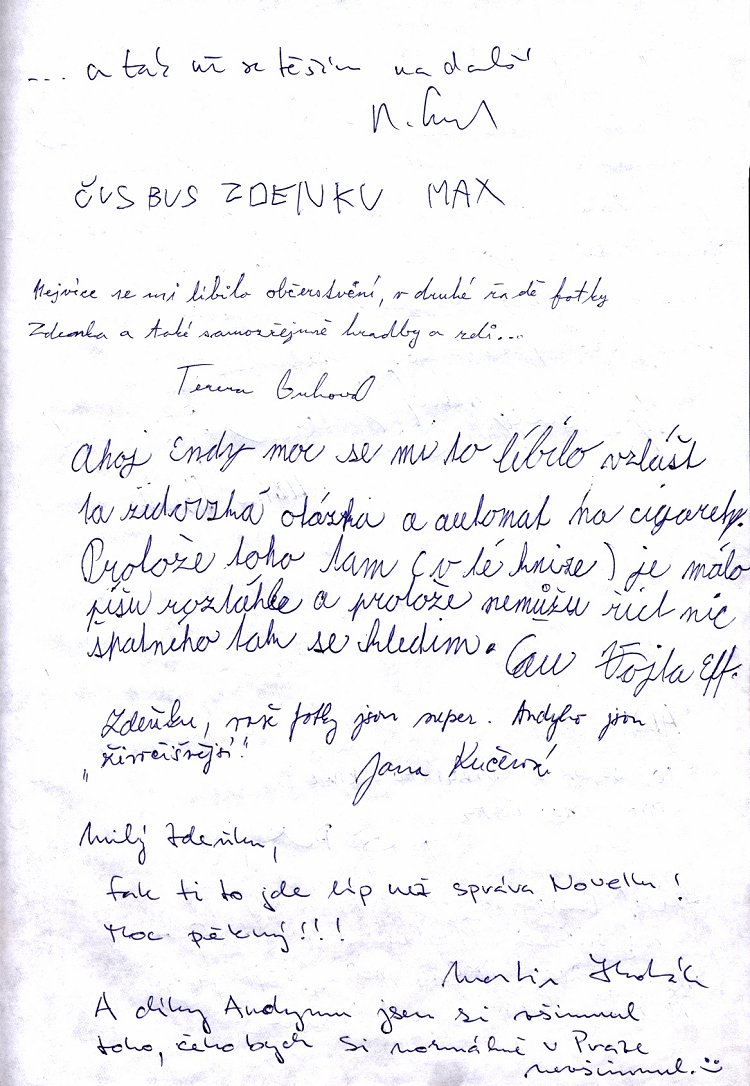 ... a tak už se těším na další
ČUS BUS ZDENKU MAX
Nejvíce se mi líbilo občerstvění, v druhé řadě fotky
Zdenka a také samozřejmě hradby a zdi...
Tereza
Ahoj Endy moc se mi to líbilo vzlášt
ta židovzká otázka a automat na cigarety.
Protože toho tam (v té knize) je málo
píšu roztáhle a protože nemůžu říct nic
špatného tak se kledim. Čau Vojta Eff.
Zdeňku, vaše fotky jsou super. Andyho jsou
„živočišnější."
Jana Kučerová
Milý Zdeňku,
fak ti to jde líp než správa Novellu!
Moc pěkný!!!
Martin
A díky Andymu jsem si všimnul
toho, čeho bych si normálně v Praze
nevšimnul.